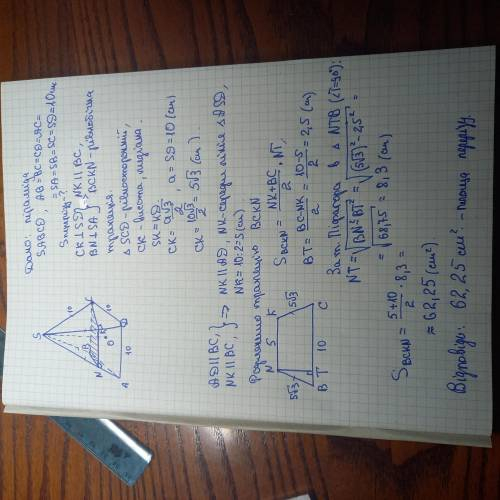 Дано: піраміда
SABCD, AB=BC=CD=AC=
=SA=SB=SC=SD=10см
Sперерізу-?
CK⊥SD, NK∥BC,
BN⊥SA, BCKN-рівнобічна
трапеція.
△SCD-рівносторонній,
CK-висота, медіана.
SK=KD
CK=a√3/2, a=SD=10 (см)
CK=10√3/2=5√3 (см).
AD∥BC,
NK∥BC, } => NK∥AD, NK-середня лінія △ASD,
NK=10:2=5(см)
Розглянемо трапецію BCKN
S_BCKN=(NK+BC)/2·NT,
BT=(BC-NK)/2=(10-5)/2=2,5 (см)
За т. Піфагора в △NTB (∠T=90°):
NT=√(BN²-BT²)=√((5√3)²-2,5²)=
=√68,75=8,3 (см)
S_BCKN=(5+10)/2·8,3=
≈62,25 (см²)
Відповідь: 62,25 см² - площа перерізу.
S
N
K
B
A
D
O
10
10
10
N
5
K
5√3
5√3
B
T
10
C